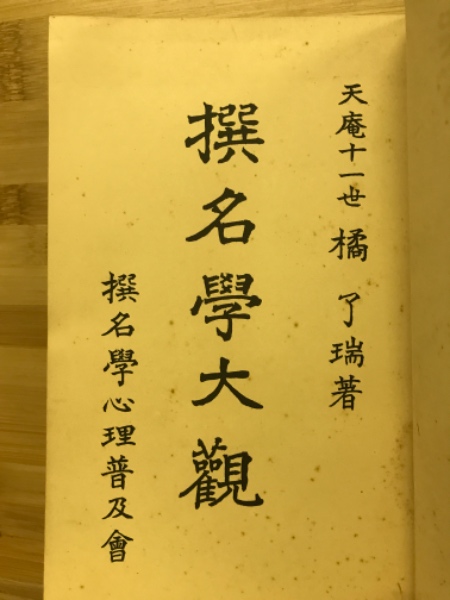 天庵十一世 橘 了瑞著
撰名學大觀
撰名學心理普及會